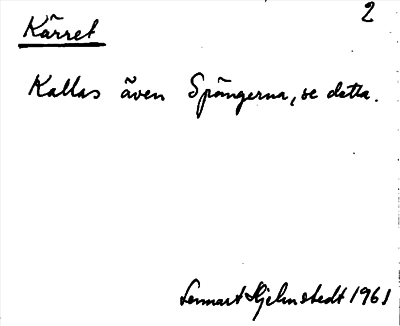 2
Kärret
Kallas även Spångerna, se detta.
Lennart Hjelmstedt 1961